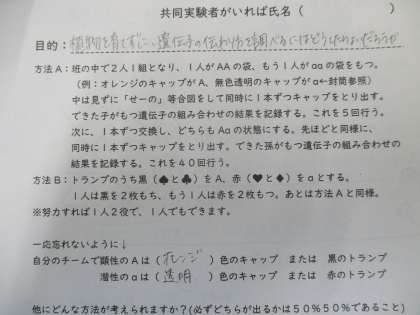 共同実験者がいれば氏名（　　　　　　　）
目的：植物を育てずに、遺伝子の伝わり方を調べるにはどうしたらよいだろうか
方法A：班の中で２人１組となり、１人がAAの袋、もう１人がaaの袋をもつ。
（例：オレンジのキャップがA、無色透明のキャップがa←封筒参照）
中は見ずに「せーの」等合図をして同時に１本ずつキャップをとり出す。
できた子がもつ遺伝子の組み合わせの結果を記録する。これを５回行う。
次に、１本ずつ交換し、どちらもAaの状態にする。先ほどと同様に、
同時に１本ずつキャップをとり出す。できた孫がもつ遺伝子の組み合わせの
結果を記録する。これを４０回行う。
方法B：トランプのうち黒（♠と♣）をA、赤（♥と♦）をaとする。
１人は黒を２枚もち、もう１人は赤を２枚もつ。あとは方法Aと同様。
※努力すれば１人２役で、１人でもできます。
一応忘れないように↓
自分のチームで顕性のAは（オレンジ）色のキャップ　または　黒のトランプ
潜性のaは（透明）色のキャップ　または　赤のトランプ
他にどんな方法が考えられますか？（必ずどちらが出るかは５０％５０％であること）